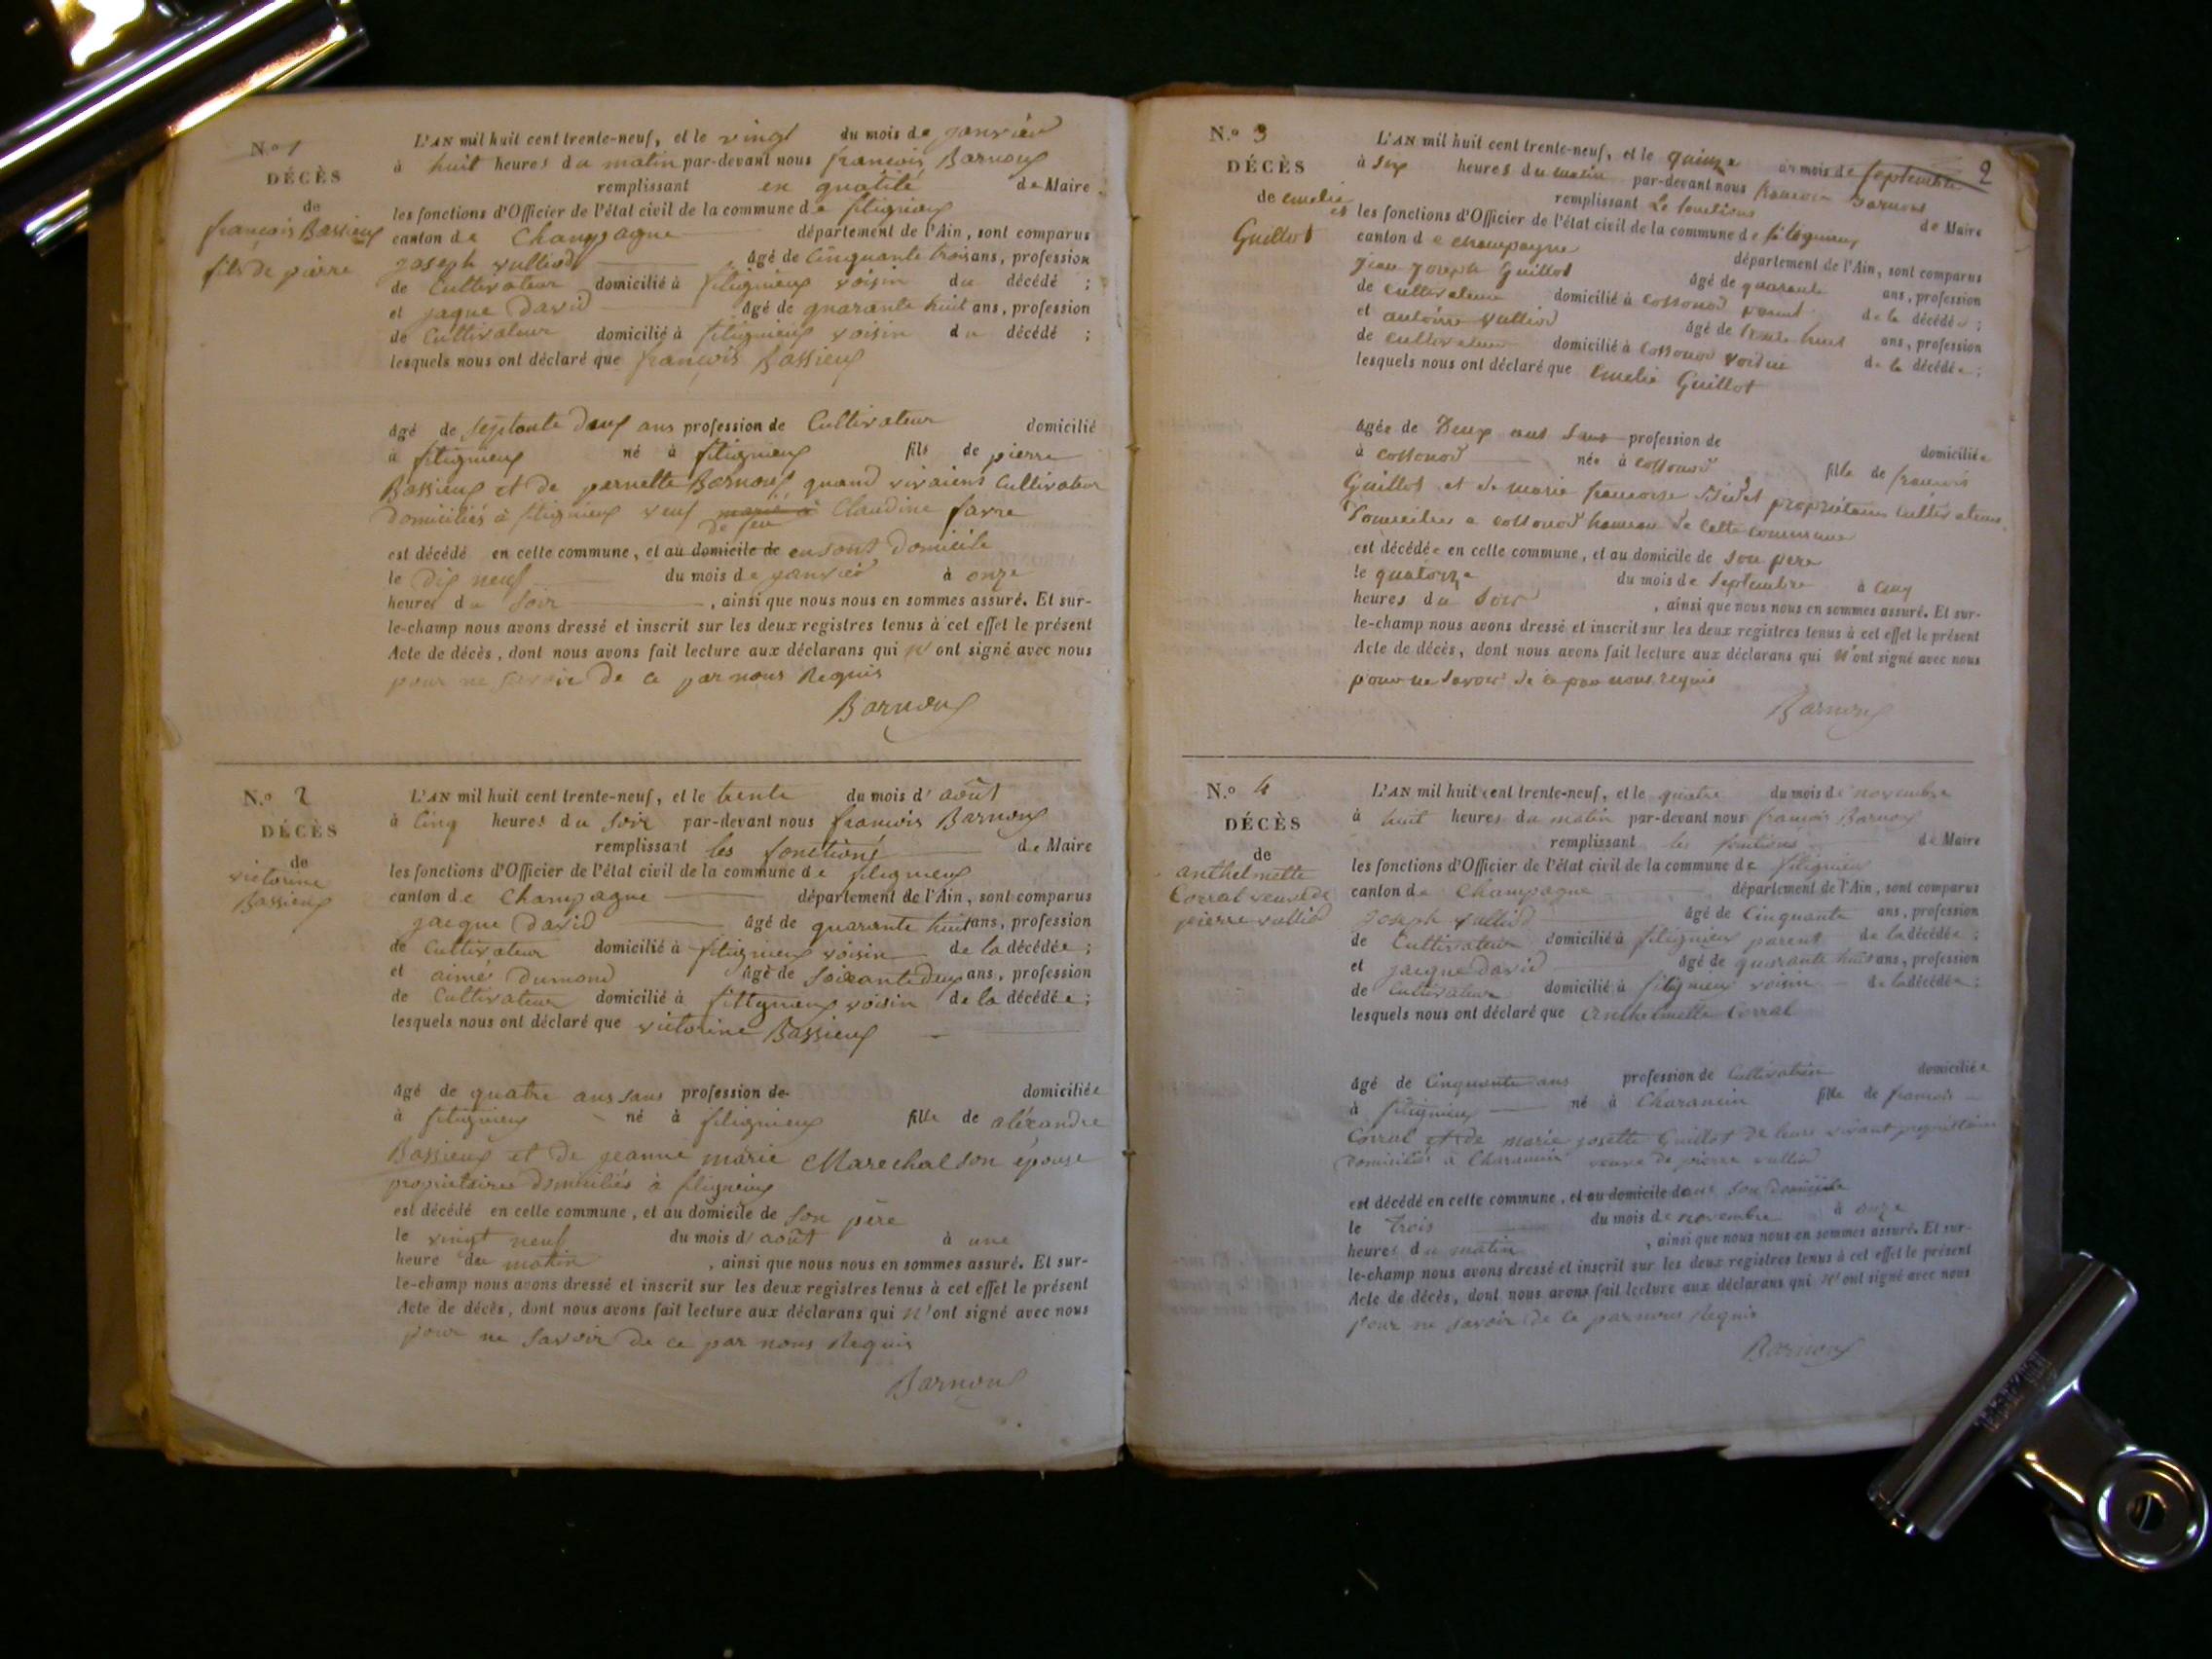 N.º 1
DÉCÈS
de
françois Bassieux
fils de pierre
L'AN mil huit cent trente-neuf, et le vingt du mois de janvier
à huit heures du matin par-devant nous francois Barnoux
remplissant en qualité de Maire
les fonctions d'Officier de l'état civil de la commune de fitignieux
canton de Champagne département de l'Ain, sont comparus
joseph vulliod âgé de Cinquante trois ans, profession
de Cultivateur domicilié à fitignieux voisin du décédé ;
et jaque David âgé de quarante huit ans, profession
de Cultivateur domicilié à fitignieux voisin du décédé ;
lesquels nous ont déclaré que françois Bassieux
âgé de septante deux ans profession de Cultivateur domicilié
à fitignieux né à fitignieux fils de pierre
Bassieux et de pernette Barnoux quand vivaient Cultivateur
domiciliés à fitignieux veuf marié à de feu Claudine favre
est décédé en cette commune, et au domicile de en sont domicile
le dix neuf du mois de janvier à onze
heures du soir , ainsi que nous nous en sommes assuré. Et sur-
le-champ nous avons dressé et inscrit sur les deux registres tenus à cet effet le présent
Acte de décès, dont nous avons fait lecture aux déclarans qui n'ont signé avec nous
pour ne savoir de ce par nous Requis
Barnoux
N.º 2
DÉCÈS
de
victorine
Bassieux
L'AN mil huit cent trente-neuf, et le trente du mois d'août
à Cinq heures du soir par-devant nous francois Barnoux
remplissant les fonctions de Maire
les fonctions d'Officier de l'état civil de la commune de fitignieux
canton de Champagne département de l'Ain, sont comparus
jacque David âgé de quarante huit ans, profession
de Cultivateur domicilié à fitignieux voisin de la décédée ;
et aimé dumond âgé de soixante deux ans, profession
de Cultivateur domicilié à fittignieux voisin de la décédée ;
lesquels nous ont déclaré que victorine Bassieux
âgé de quatre ans sans profession de domiciliée
à fitignieux né à fitignieux fille de aléxandre
Bassieux et de jeanne marie Marechal son épouse
propriétaires domiciliés à fitignieux
est décédé en cette commune, et au domicile de son père
le vingt neuf du mois d'août à une
heure du matin , ainsi que nous nous en sommes assuré. Et sur-
le-champ nous avons dressé et inscrit sur les deux registres tenus à cet effet le présent
Acte de décès, dont nous avons fait lecture aux déclarans qui n'ont signé avec nous
pour ne savoir de ce par nous Requis
Barnoux
2
N.º 3
DÉCÈS
de emelie
Guillot
L'AN mil huit cent trente-neuf, et le quinze du mois de septembre
à six heures du matin par-devant nous francois Barnoux
remplissant Le fonctions de Maire
les fonctions d'Officier de l'état civil de la commune de fitignieux
canton de champagne département de l'Ain, sont comparus
jean joseph Guillot âgé de quarante ans, profession
de cultivateur domicilié à cossonod parent de la décédée ;
et antoine vulliod âgé de trente huit ans, profession
de cultivateur domicilié à cossonod voisin de la décédée ;
lesquels nous ont déclaré que emelie Guillot
âgée de Deux ans sans profession de domiciliée
à cossonod née à cossonod fille de francois
Guillot et de marie francoise propriétaires cultivateurs
Domicilies a cossonod hameau de cette commune
est décédée en cette commune, et au domicile de son pere
le quatorze du mois de septembre à cinq
heures du soir , ainsi que nous nous en sommes assuré. Et sur-
le-champ nous avons dressé et inscrit sur les deux registres tenus à cet effet le présent
Acte de décès, dont nous avons fait lecture aux déclarans qui n'ont signé avec nous
pour ne savoir de ce par nous requis
Barnoux
N.º 4
DÉCÈS
de
anthelmette
Corral veuve de
pierre vulliod
L'AN mil huit cent trente-neuf, et le quatre du mois de novembre
à huit heures du matin par-devant nous françois Barnoux
remplissant les fonctions de Maire
les fonctions d'Officier de l'état civil de la commune de fitignieux
canton de Champagne département de l'Ain, sont comparus
joseph vulliod âgé de Cinquante ans, profession
de Cultivateur domicilié à fitignieux parent de la décédée ;
et jacque David âgé de quarante huit ans, profession
de Cultivateur domicilié à fitignieux voisin de la décédée ;
lesquels nous ont déclaré que Anthelmette Corral
âgé de Cinquante ans profession de Cultivatrice domiciliée
à fitignieux né à Charancin fille de francois
Corral et de marie josette Guillot de leurs vivant propriétaires
domiciliés à Charancin veuve de pierre vulliod
est décédé en cette commune, et au domicile de dans son domicile
le trois du mois de novembre à onze
heures du matin , ainsi que nous nous en sommes assuré. Et sur-
le-champ nous avons dressé et inscrit sur les deux registres tenus à cet effet le présent
Acte de décès, dont nous avons fait lecture aux déclarans qui n'ont signé avec nous
pour ne savoir de ce par nous Requis
Barnoux